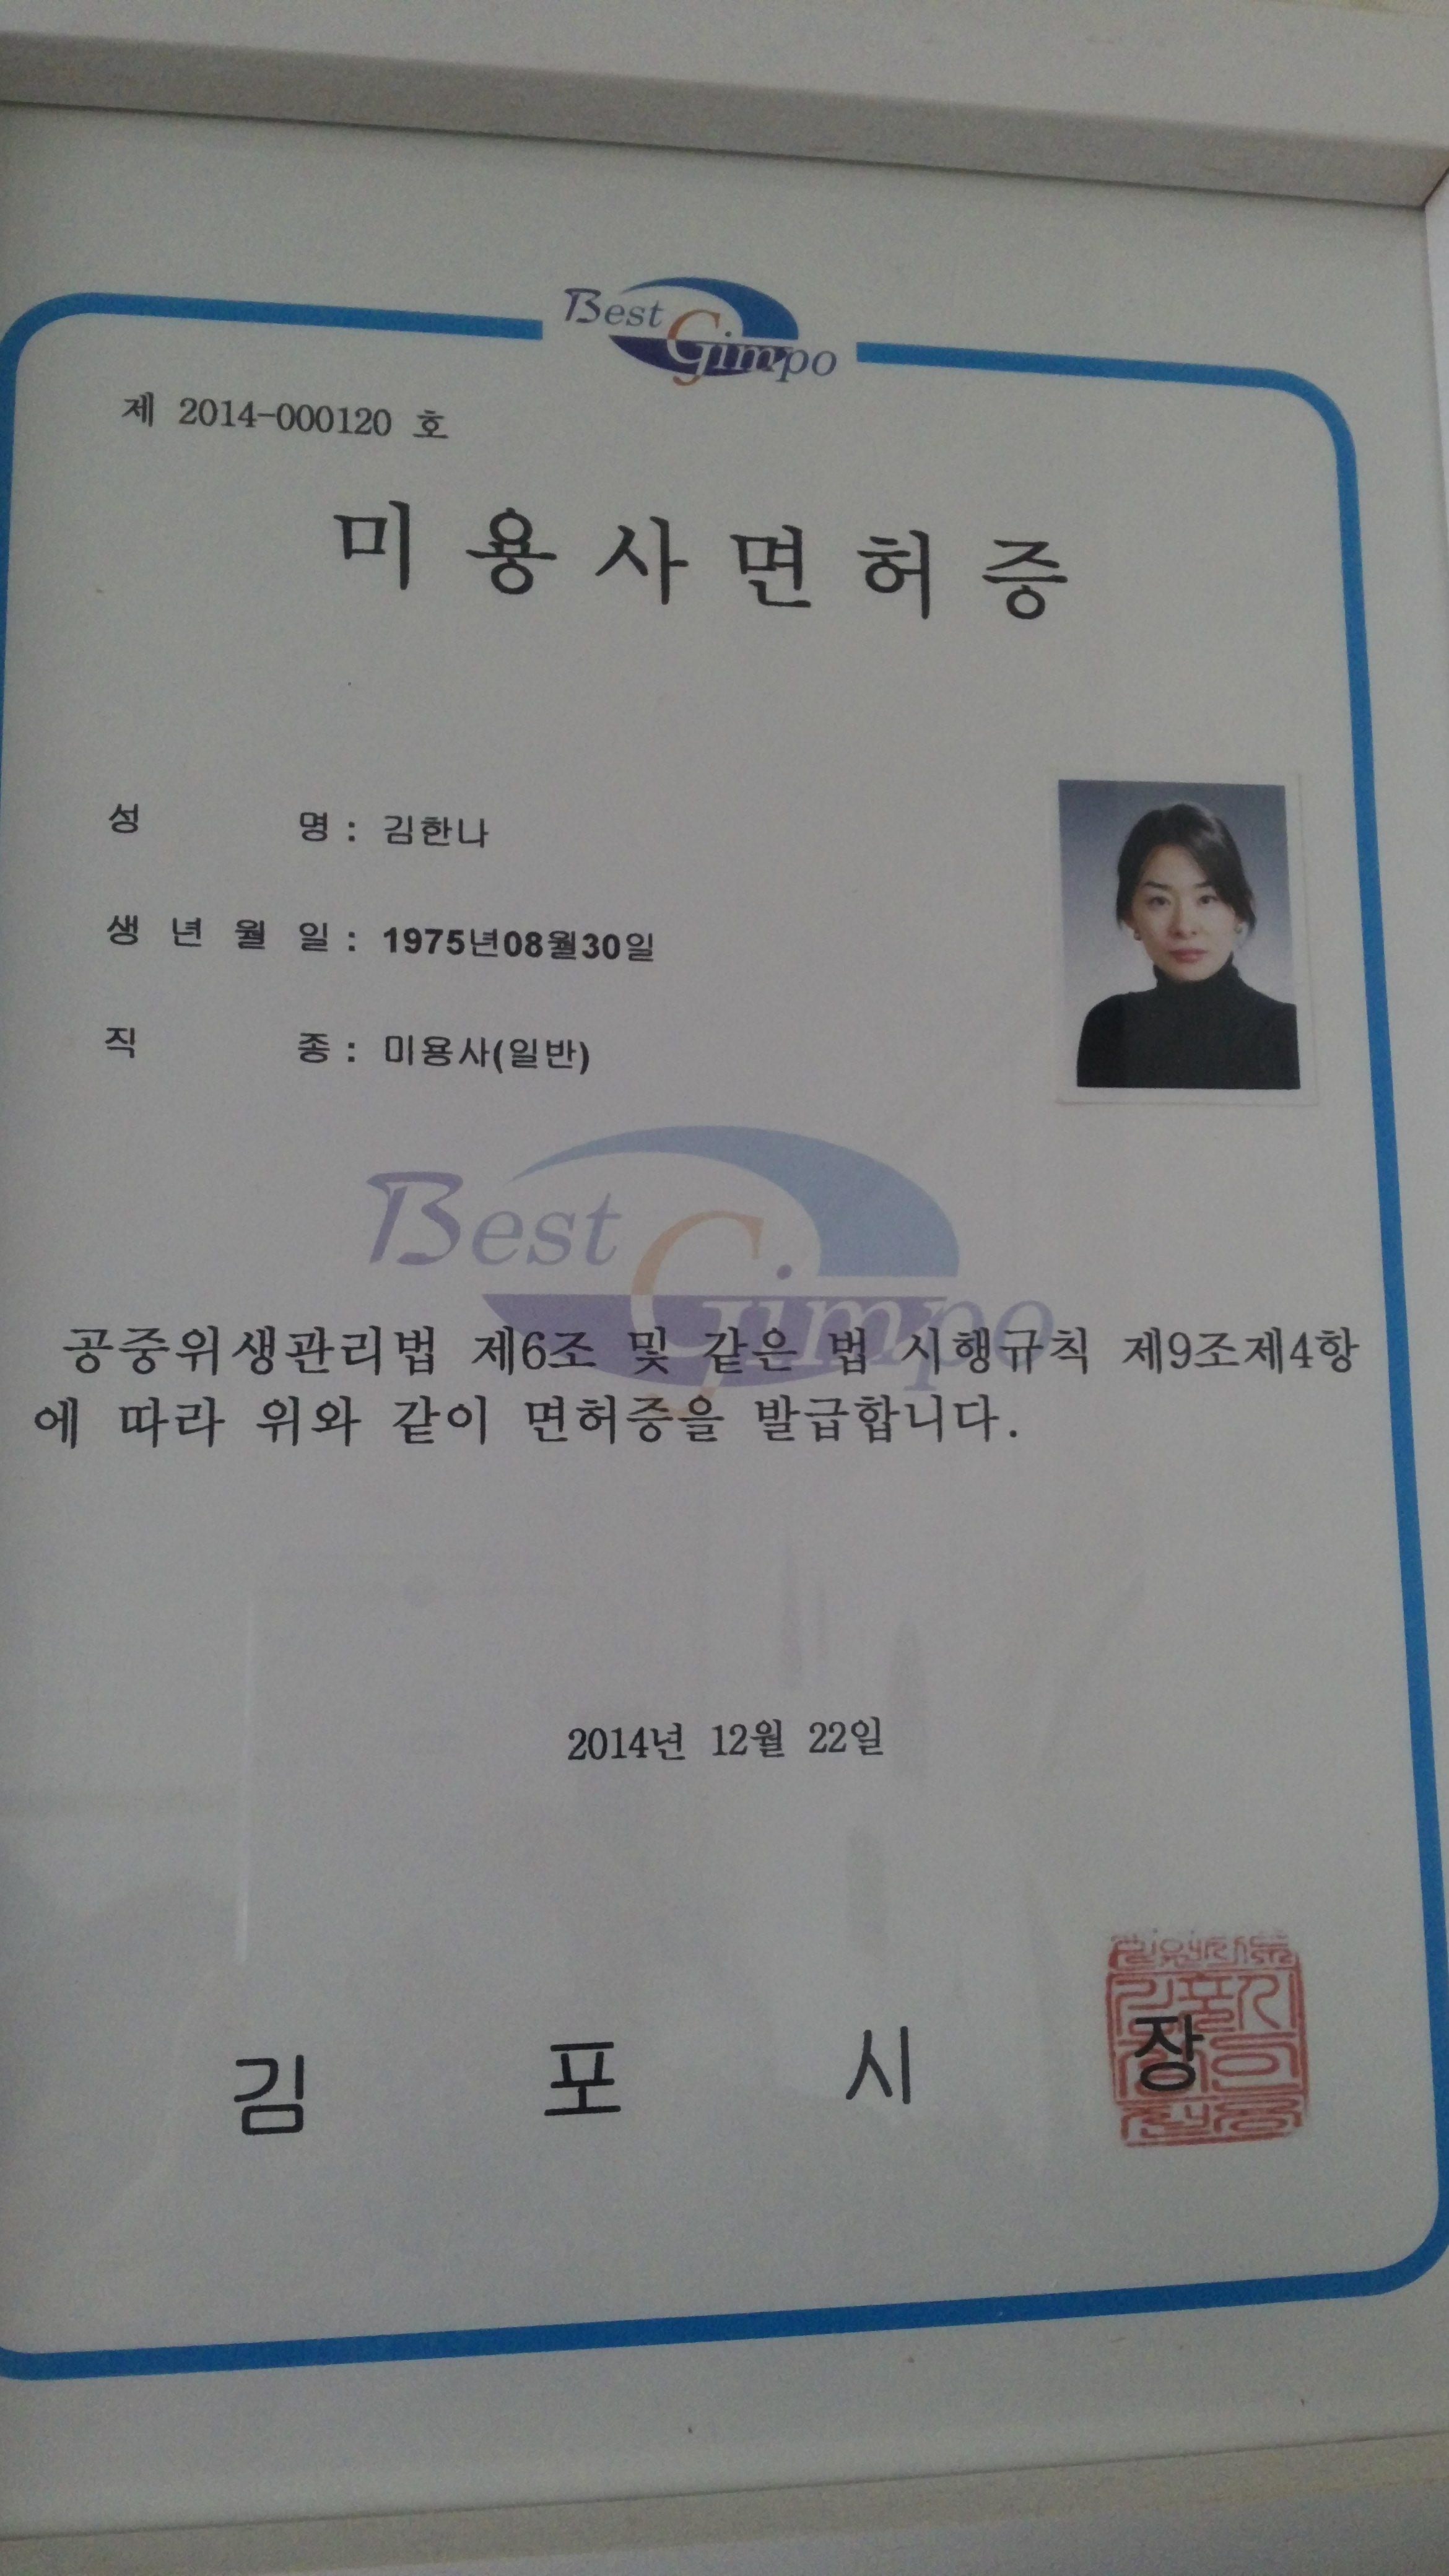 Best Gimpo
제 2014-000120 호
미용사면허증
성 명 : 김한나
생 년 월 일 : 1975년08월30일
직 종 : 미용사(일반)
Best Gimpo
공중위생관리법 제6조 및 같은 법 시행규칙 제9조제4항
에 따라 위와 같이 면허증을 발급합니다.
2014년 12월 22일
김 포 시 장